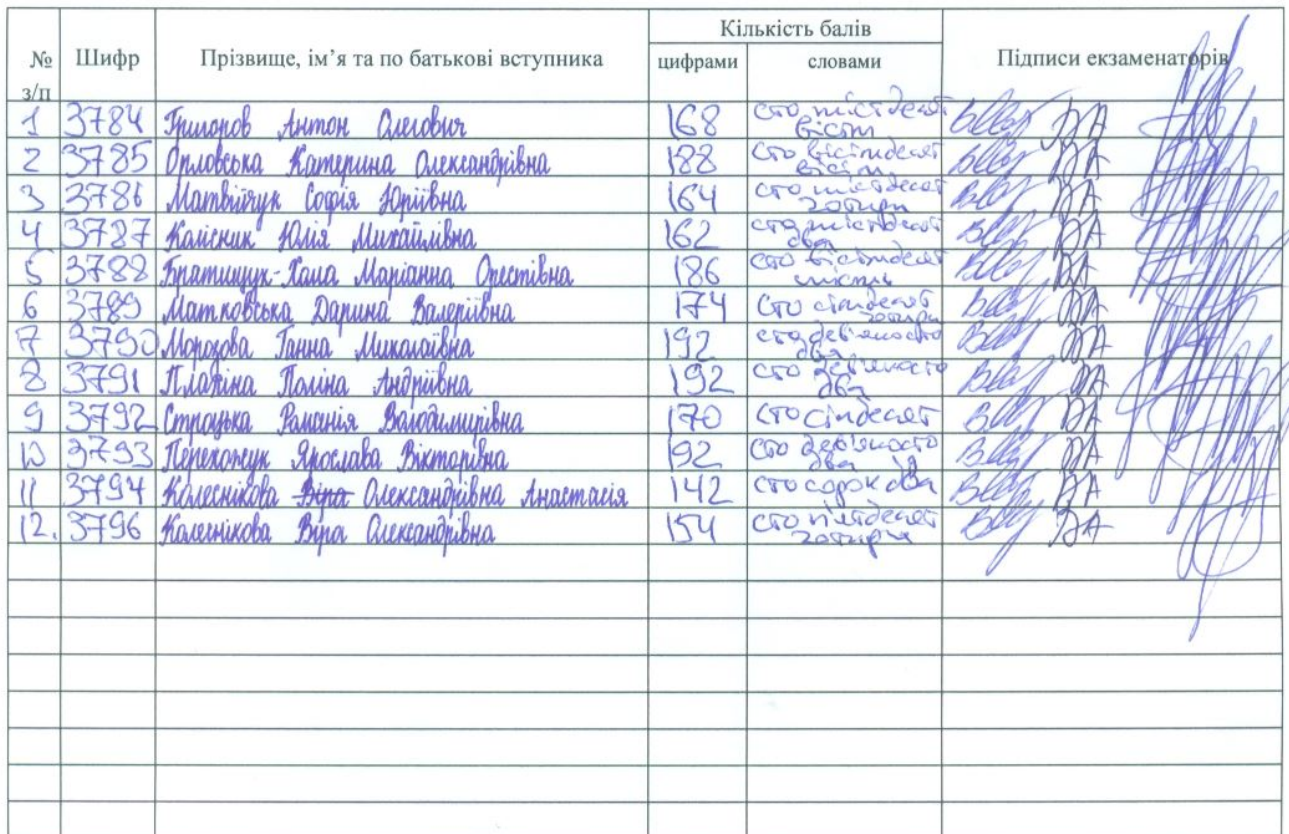 № з/п Шифр Прізвище, ім’я та по батькові вступника Кількість балів цифрами словами Підписи екзаменаторів
1 3784 Григоров Антон Олегович 168 сто шістдесят вісім
2 3785 Орловська Катерина Олександрівна 188 сто вісімдесят вісім
3 3786 Матвійчук Софія Юріївна 164 сто шістдесят чотири
4 3787 Юлія Михайлівна 162 сто шістдесят два
5 3788 Маріанна Орестівна 186 сто вісімдесят шість
6 3789 Матковська Дарина Валеріївна 174 сто сімдесят чотири
7 3790 Морозова Ганна Миколаївна 192 сто дев'яносто два
8 3791 Поліна Андріївна 192 сто дев'яносто два
9 3792 Романія Володимирівна 170 сто сімдесят
10 3793 Перехожук Ярослава Вікторівна 192 сто дев'яносто два
11 3794 Колеснікова Віра Олександрівна Анастасія 142 сто сорок два
12. 3796 Колеснікова Віра Олександрівна 154 сто п'ятдесят чотири